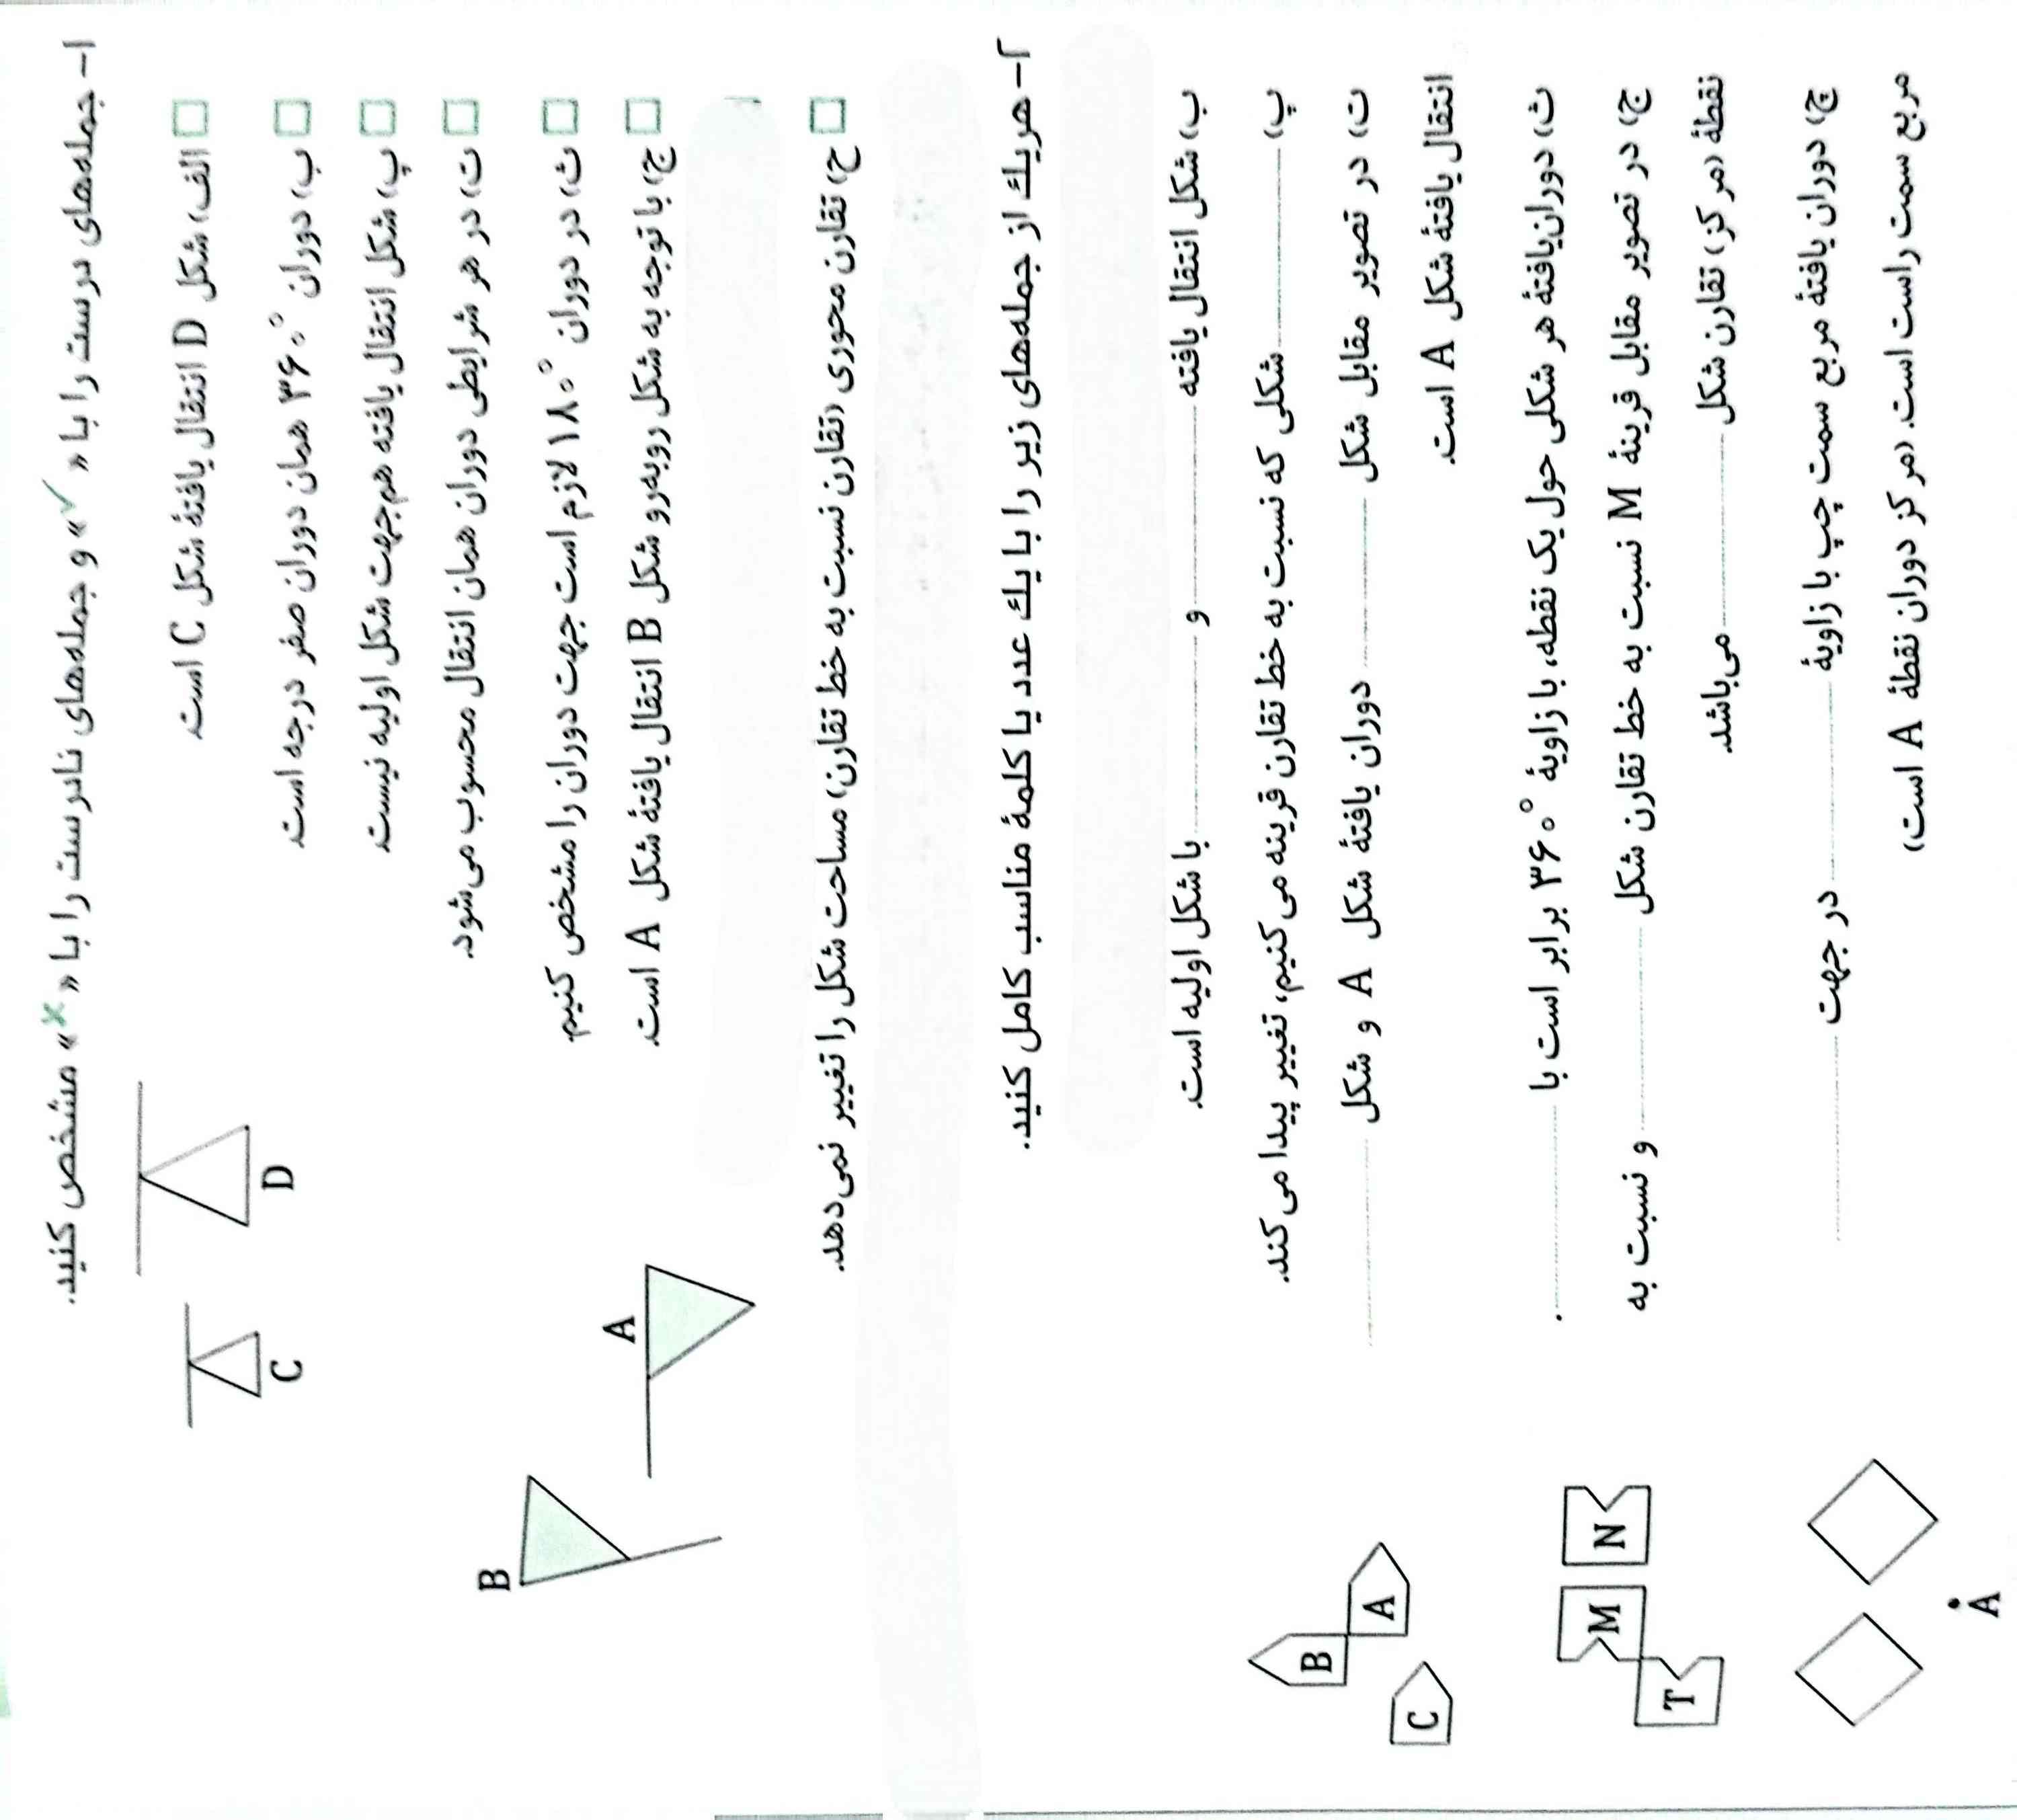 ۱- جمله‌های درست را با « ✓ » و جمله‌های نادرست را با « × » مشخص کنید.
□ الف) شکل D انتقال یافتهٔ شکل C است.
C
D
□ ب) دوران ۳۶۰° همان دوران صفر درجه است.
□ پ) شکل انتقال یافته هم‌جهت شکل اولیه نیست.
□ ت) در هر شرایطی دوران همان انتقال محسوب می‌شود.
□ ث) در دوران ۱۸۰° لازم است جهت دوران را مشخص کنیم.
□ ج) با توجه به شکل روبه‌رو شکل B انتقال یافتهٔ شکل A است.
B
A
□ ح) تقارن محوری (تقارن نسبت به خط تقارن) مساحت شکل را تغییر نمی‌دهد.
۲- هریك از جمله‌های زیر را با یك عدد یا کلمهٔ مناسب کامل کنید.
ب) شکل انتقال یافته ............ و ............ با شکل اولیه است.
پ) ............ شکلی که نسبت به خط تقارن قرینه می‌کنیم، تغییر پیدا می‌کند.
ت) در تصویر مقابل شکل ............ دوران یافتهٔ شکل A و شکل ............
انتقال یافتهٔ شکل A است.
B
A
C
ث) دوران‌یافتهٔ هر شکلی حول یک نقطه، با زاویهٔ ۳۶۰° برابر است با ............ .
ج) در تصویر مقابل قرینهٔ M نسبت به خط تقارن شکل ............ و نسبت به
نقطهٔ (مرکز) تقارن شکل ............ می‌باشد.
M
N
T
چ) دوران یافتهٔ مربع سمت چپ با زاویهٔ ............ در جهت ............
مربع سمت راست است. (مرکز دوران نقطهٔ A است)
A